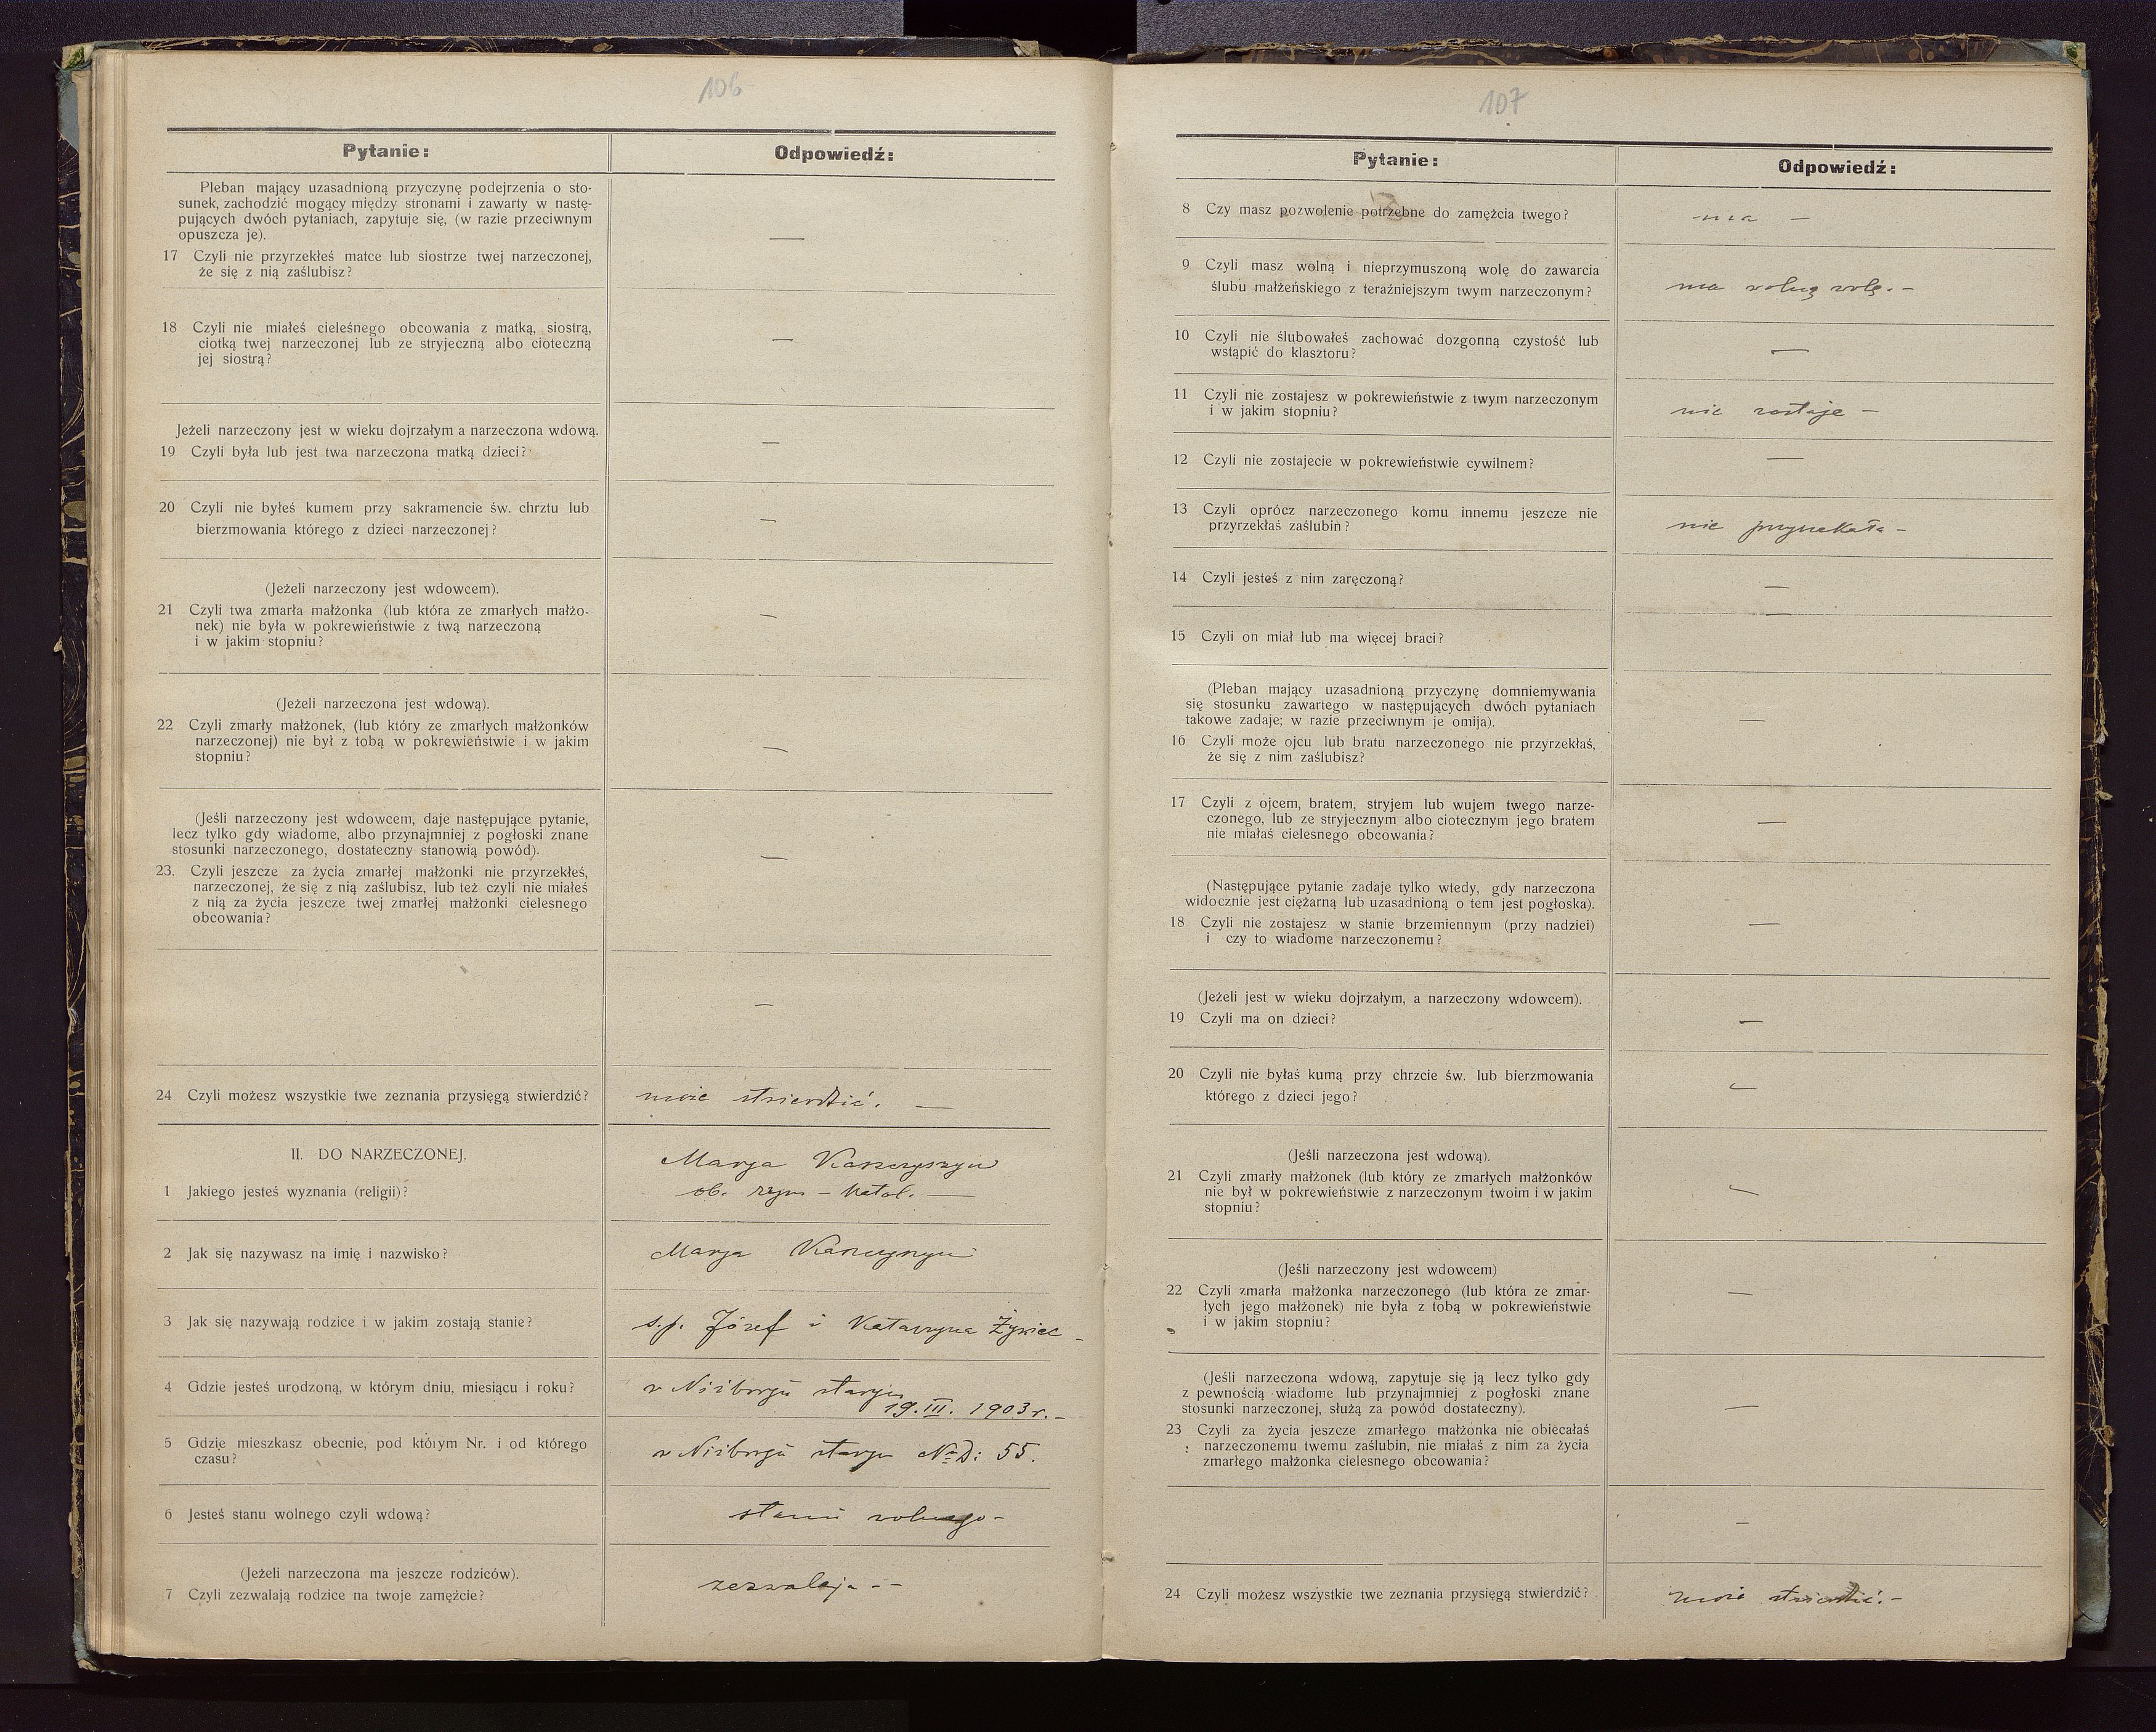 106
Pytanie:
Odpowiedź:
Pleban mający uzasadnioną przyczynę podejrzenia o sto-
sunek, zachodzić mogący między stronami i zawarty w nastę-
pujących dwóch pytaniach, zapytuje się, (w razie przeciwnym
opuszcza je).
—
17 Czyli nie przyrzekłeś matce lub siostrze twej narzeczonej,
że się z nią zaślubisz?
18 Czyli nie miałeś cieleśnego obcowania z matką, siostrą,
ciotką twej narzeczonej lub ze stryjeczną albo cioteczną
jej siostrą?
—
Jeżeli narzeczony jest w wieku dojrzałym a narzeczona wdową.
19 Czyli była lub jest twa narzeczona matką dzieci?
—
20 Czyli nie byłeś kumem przy sakramencie św. chrztu lub
bierzmowania którego z dzieci narzeczonej?
—
(Jeżeli narzeczony jest wdowcem).
21 Czyli twa zmarła małżonka (lub która ze zmarłych małżo-
nek) nie była w pokrewieństwie z twą narzeczoną
i w jakim stopniu?
—
(Jeżeli narzeczona jest wdową).
22 Czyli zmarły małżonek, (lub który ze zmarłych małżonków
narzeczonej) nie był z tobą w pokrewieństwie i w jakim
stopniu?
—
(Jeśli narzeczony jest wdowcem, daje następujące pytanie,
lecz tylko gdy wiadome, albo przynajmniej z pogłoski znane
stosunki narzeczonego, dostateczny stanowią powód).
—
23. Czyli jeszcze za życia zmarłej małżonki nie przyrzekłeś,
narzeczonej, że się z nią zaślubisz, lub też czyli nie miałeś
z nią za życia jeszcze twej zmarłej małżonki cielesnego
obcowania?
—
24 Czyli możesz wszystkie twe zeznania przysięgą stwierdzić?
może stwierdzić. —
II. DO NARZECZONEJ.
Marya
1 Jakiego jesteś wyznania (religii)?
ob. rzym – katol. —
2 Jak się nazywasz na imię i nazwisko?
Marya
3 Jak się nazywają rodzice i w jakim zostają stanie?
s.p. Józef i Katarzyna Żywiec –
4 Gdzie jesteś urodzoną, w którym dniu, miesiącu i roku?
w Niżborgu starym
19. III. 1903 r. –
5 Gdzie mieszkasz obecnie, pod którym Nr. i od którego
czasu?
w Niżborgu starym No D: 55.
6 Jesteś stanu wolnego czyli wdową?
stanu wolnego –
(Jeżeli narzeczona ma jeszcze rodziców).
7 Czyli zezwalają rodzice na twoje zamęźcie?
zezwalają – –
107
Pytanie:
Odpowiedź:
8 Czy masz pozwolenie potrzebne do zamężcia twego?
ma –
9 Czyli masz wolną i nieprzymuszoną wolę do zawarcia
ślubu małżeńskiego z teraźniejszym twym narzeczonym?
ma wolną wolę. –
10 Czyli nie ślubowałeś zachować dozgonną czystość lub
wstąpić do klasztoru?
—
11 Czyli nie zostajesz w pokrewieństwie z twym narzeczonym
i w jakim stopniu?
nie zostaje –
12 Czyli nie zostajecie w pokrewieństwie cywilnem?
—
13 Czyli oprócz narzeczonego komu innemu jeszcze nie
przyrzekłaś zaślubin?
nie przyrzekała –
14 Czyli jesteś z nim zaręczoną?
—
15 Czyli on miał lub ma więcej braci?
—
(Pleban mający uzasadnioną przyczynę domniemywania
się stosunku zawartego w następujących dwóch pytaniach
takowe zadaje; w razie przeciwnym je omija).
—
16 Czyli może ojcu lub bratu narzeczonego nie przyrzekłaś,
że się z nim zaślubisz?
17 Czyli z ojcem, bratem, stryjem lub wujem twego narze-
czonego, lub ze stryjecznym albo ciotecznym jego bratem
nie miałaś cielesnego obcowania?
—
(Następujące pytanie zadaje tylko wtedy, gdy narzeczona
widocznie jest ciężarną lub uzasadnioną o tem jest pogłoska).
18 Czyli nie zostajesz w stanie brzemiennym (przy nadziei)
i czy to wiadome narzeczonemu?
—
(Jeżeli jest w wieku dojrzałym, a narzeczony wdowcem).
19 Czyli ma on dzieci?
—
20 Czyli nie byłaś kumą przy chrzcie św. lub bierzmowania
którego z dzieci jego?
—
(Jeśli narzeczona jest wdową).
21 Czyli zmarły małżonek (lub który ze zmarłych małżonków
nie był w pokrewieństwie z narzeczonym twoim i w jakim
stopniu?
—
(Jeśli narzeczony jest wdowcem)
22 Czyli zmarła małżonka narzeczonego (lub która ze zmar-
łych jego małżonek) nie była z tobą w pokrewieństwie
i w jakim stopniu?
—
(Jeśli narzeczona wdową, zapytuje się ją lecz tylko gdy
z pewnością wiadome lub przynajmniej z pogłoski znane
stosunki narzeczonej, służą za powód dostateczny).
—
23 Czyli za życia jeszcze zmarłego małżonka nie obiecałaś
narzeczonemu twemu zaślubin, nie miałaś z nim za życia
zmarłego małżonka cielesnego obcowania?
—
24 Czyli możesz wszystkie twe zeznania przysięgą stwierdzić?
może stwierdzić. –